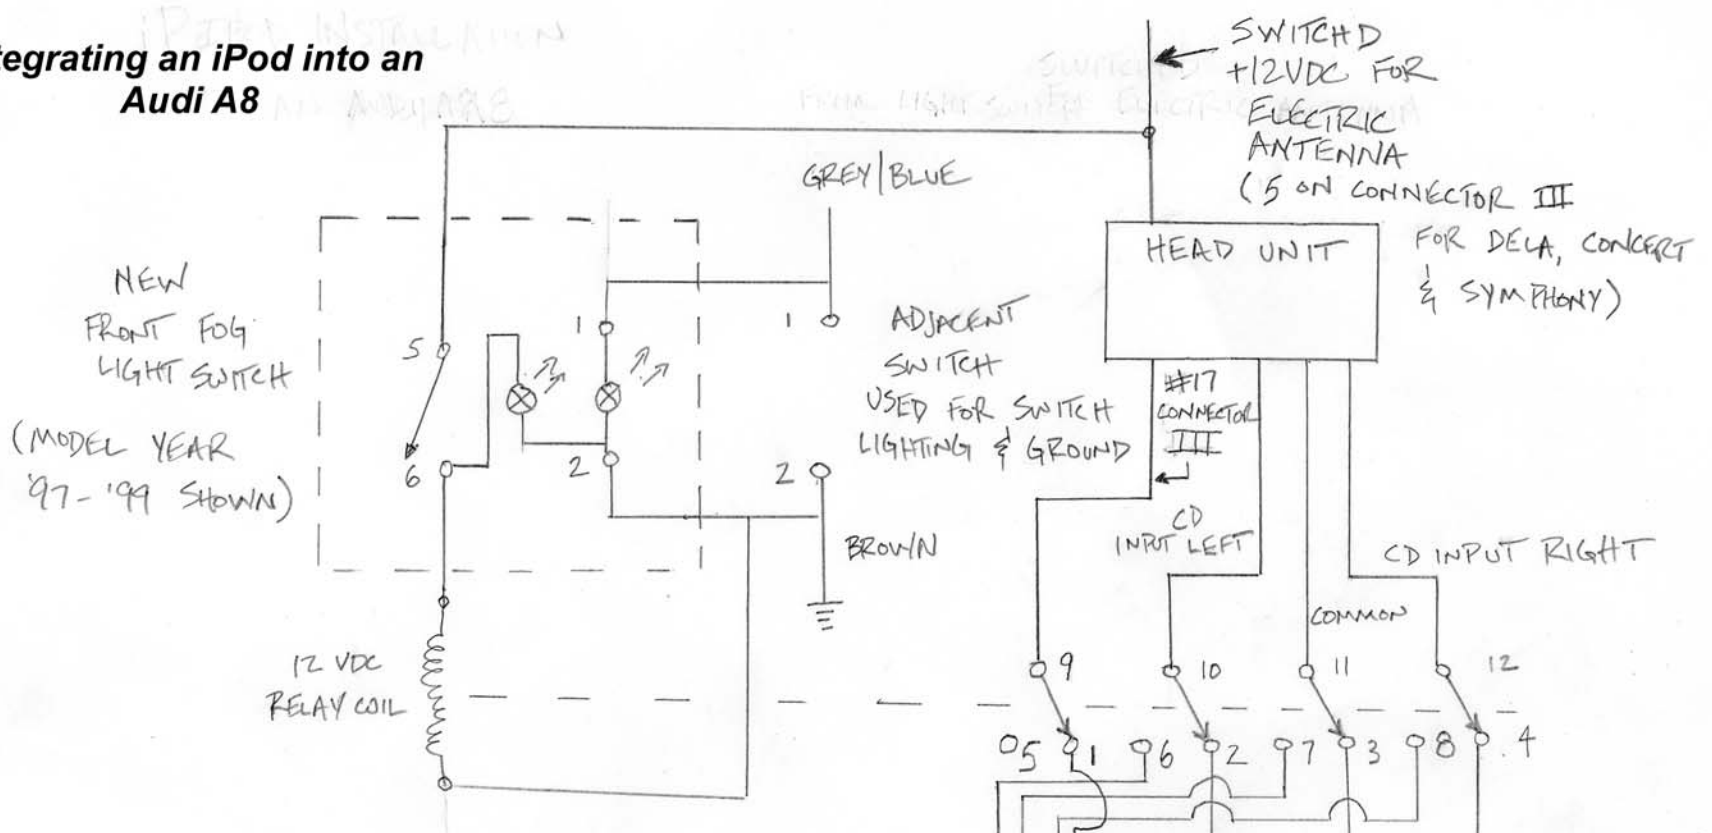 tegrating an iPod into an
Audi A8
SWITCHD
+12VDC FOR
ELECTRIC
ANTENNA
(5 ON CONNECTOR III
FOR DELA, CONCERT
& SYMPHONY)
GREY/BLUE
HEAD UNIT
NEW
FRONT FOG
LIGHT SWITCH
(MODEL YEAR
'97-'99 SHOWN)
5
6
1
2
1
2
ADJACENT
SWITCH
USED FOR SWITCH
LIGHTING & GROUND
BROWN
#17
CONNECTOR
III
CD
INPUT LEFT
CD INPUT RIGHT
COMMON
12 VDC
RELAY COIL
9 10 11 12
5 1 6 2 7 3 8 4